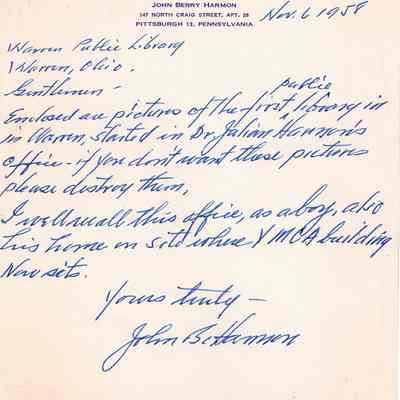 JOHN BERRY HARMON
147 NORTH CRAIG STREET, APT. 28
PITTSBURGH 13, PENNSYLVANIA
Nov. 6 1958
Warren Public Library
Warren, Ohio.
Gentlemen -
Enclosed are pictures of the first public library in
in Warren, started in Dr. Julian Harmon's
office - if you don't want these pictures
please destroy them,
I well recall this office, as a boy, also
his home on site where YMCA building
Now sets.
Yours truly -
John B. Harmon